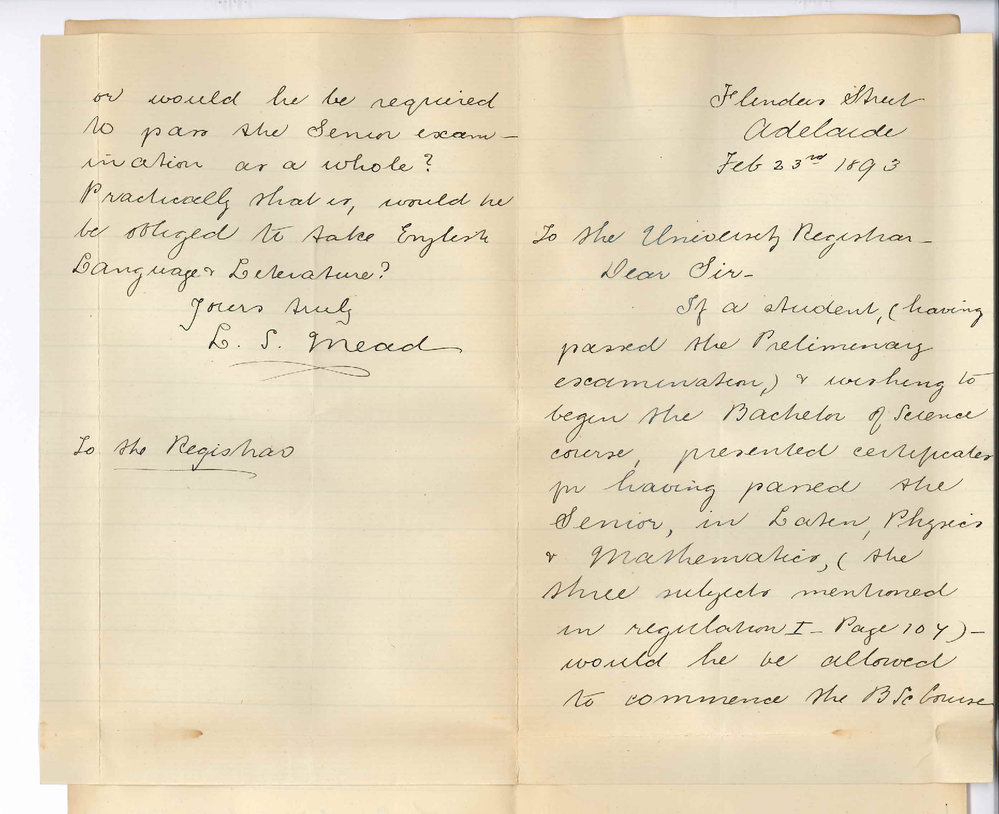 Flinders Street
Adelaide
Feb 23rd 1893
To the University Registrar-
Dear Sir-
If a student, (having
passed the Preliminary
examination,) & wishing to
begin the Bachelor of Science
course, presented certificates
for having passed the
Senior, in Laten, Physics
& Mathematics, (the
three subjects mentioned
in regulation I - Page 107)-
would he be allowed
to commence the BSc Course
or would he be required
to pass the Senior exam-
ination as a whole?
Practically that is, would he
be obliged to take English
Language & Literature?
Yours truly
L. S. Mead
To the Registrar